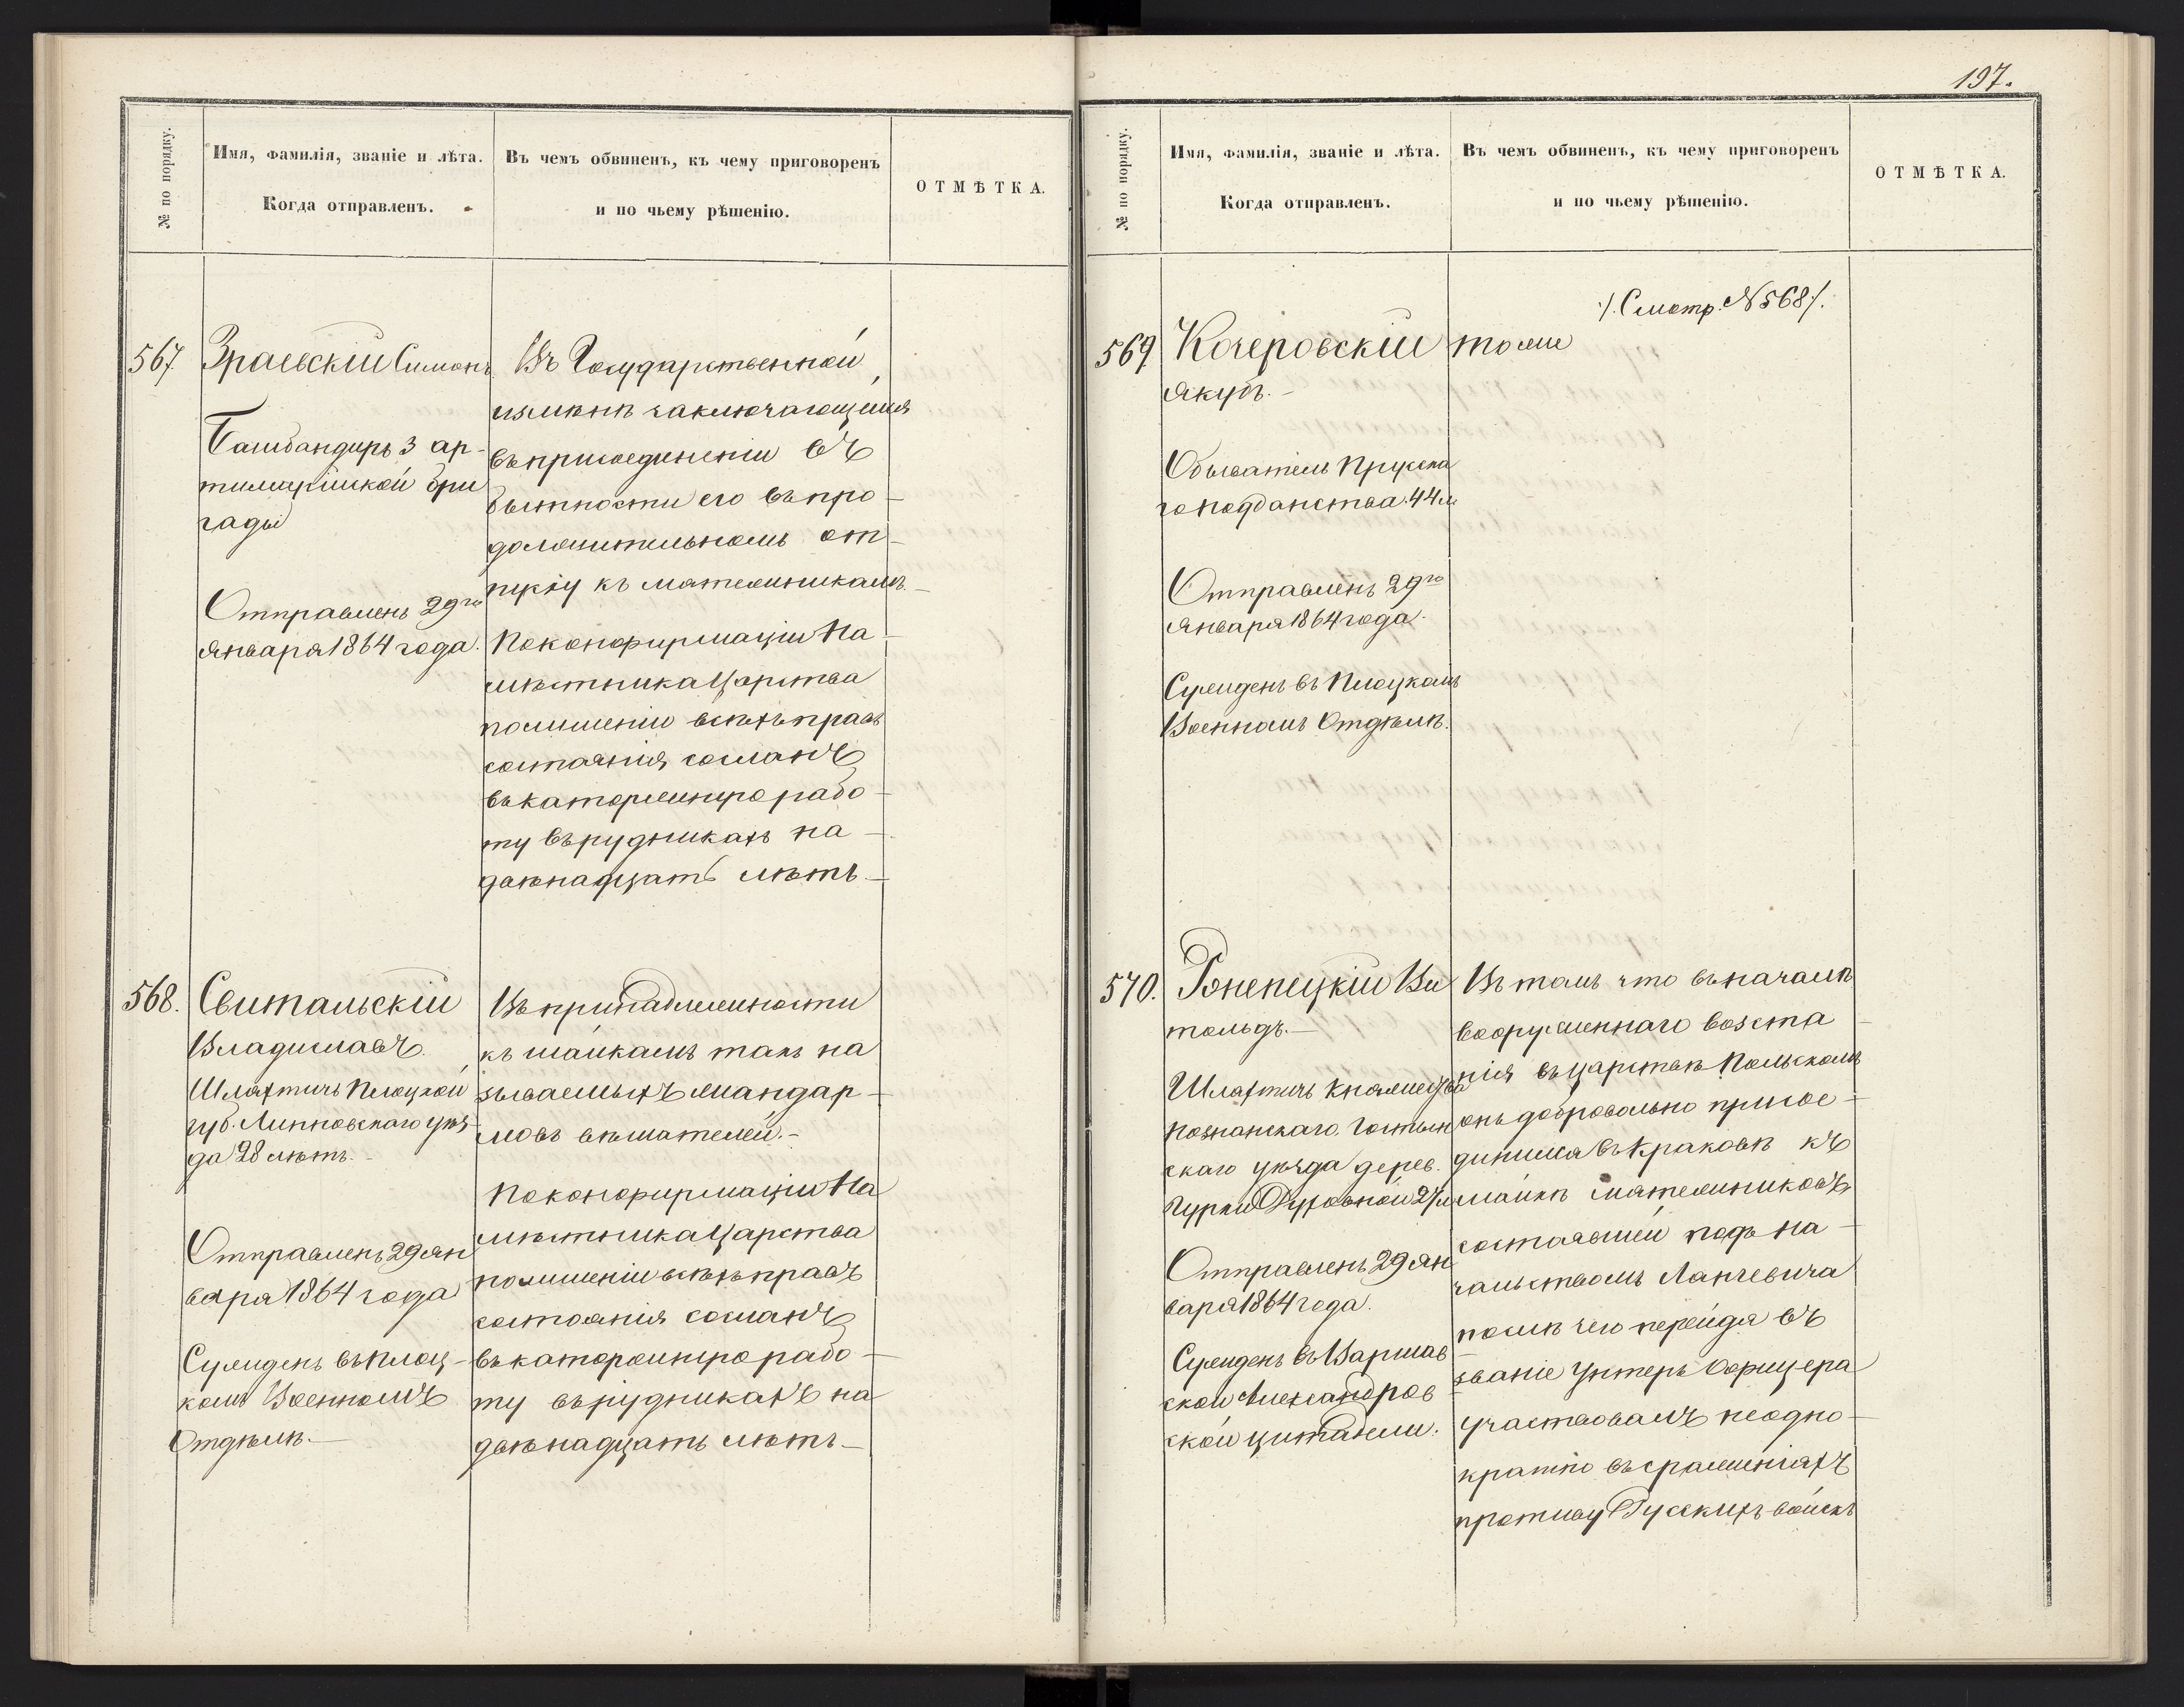 № по порядку.
Имя, фамилія, званіе и лѣта.
Когда отправленъ.
Въ чемъ обвиненъ, къ чему приговоренъ
и по чьему рѣшенію.
ОТМѢТКА.
567
Зраевскій Симонъ
Башбандиръ 3 ар-
тилирійской бри
гады
Отправленъ 29го
Января 1864 года.
Въ Государственной
измѣнѣ заключающийся
въ присоединеніи въ
бытности его въ про-
должительномъ от-
пуску къ мятежникамъ.-
По конфирмаціи На-
мѣстника Царства
по лишеніи всѣхъ правъ
состоянія сосланъ
въ каторжную рабо-
ту въ рудникахъ на-
двѣнадцать лѣтъ.-
568.
Свитальскій
Владиславъ.
Шляхтичъ Плоцкой
губ. Липновскаго уѣз-
да 28 лѣтъ.-
Отправленъ 29 Ян
варя 1864 года
Сужденъ въ Плоц-
комъ Военномъ
Отдѣлѣ.-
Въ принадлежности
къ шайкамъ такъ на
зываемыхъ жандар-
мовъ вѣшателей.-
По конфирмаціи На
мѣстника Царства
по лишеніи всѣхъ правъ
состоянія сосланъ
въ каторжную рабо-
ту въ рудникахъ на
двѣнадцать лѣтъ-
197.
№ по порядку.
Имя, фамилія, званіе и лѣта.
Когда отправленъ.
Въ чемъ обвиненъ, къ чему приговоренъ
и по чьему рѣшенію.
ОТМѢТКА.
569.
Кочеровскій
Якубъ.-
Обыватель Прусска
го подданства. 44 л.
Отправленъ 29го
Января 1864 года.
Сужденъ въ Плоцкомъ
Военномъ Отдѣлѣ.
./. Смотр. N 568 /.
тоже
570.
Рѣпецкій Ви
тольдъ.-
Шляхтичъ Княжества
Познанскаго. Гостын
скаго уѣзда дерев.
Гурки Духовной 27 л
Отправленъ 29 Ян
варя 1864 года.
Сужденъ въ Варшав
ской Александров
ской цитадели.
Въ томъ что въ началѣ
вооруженнаго возста-
нія въ царствѣ Польскомъ
онъ добровольно присое-
динился въ Краковѣ къ
шайкѣ мятежниковъ,
состоявшей подъ на-
чальствомъ Лангевича
послѣ чего перейдя въ
званіе Унтеръ Офицера
участвовалъ неодно-
кратно въ сраженіяхъ
противу Русскихъ войскъ